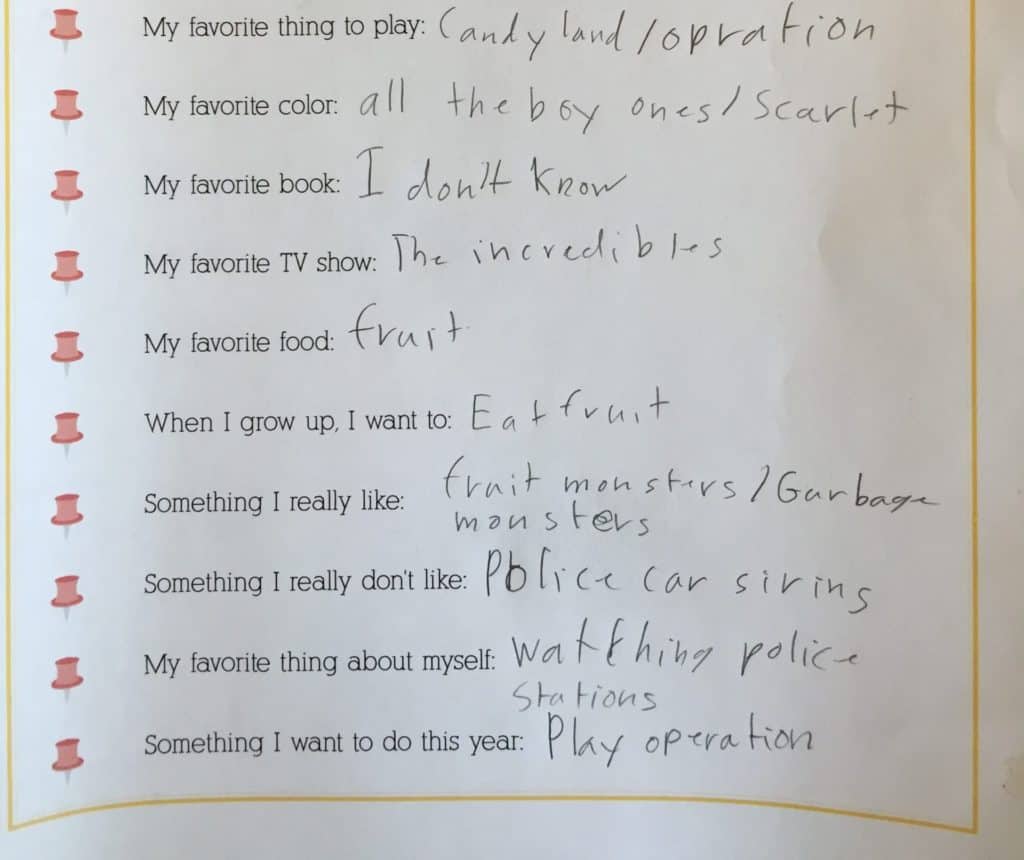 My favorite thing to play: Candy land/opration
My favorite color: all the boy ones/Scarlet
My favorite book: I don't know
My favorite TV show: The incredibles
My favorite food: fruit
When I grow up, I want to: Eat fruit
Something I really like: fruit monsters/Garbage
monsters
Something I really don't like: Police car sirins
My favorite thing about myself: watthing police
stations
Something I want to do this year: Play operation